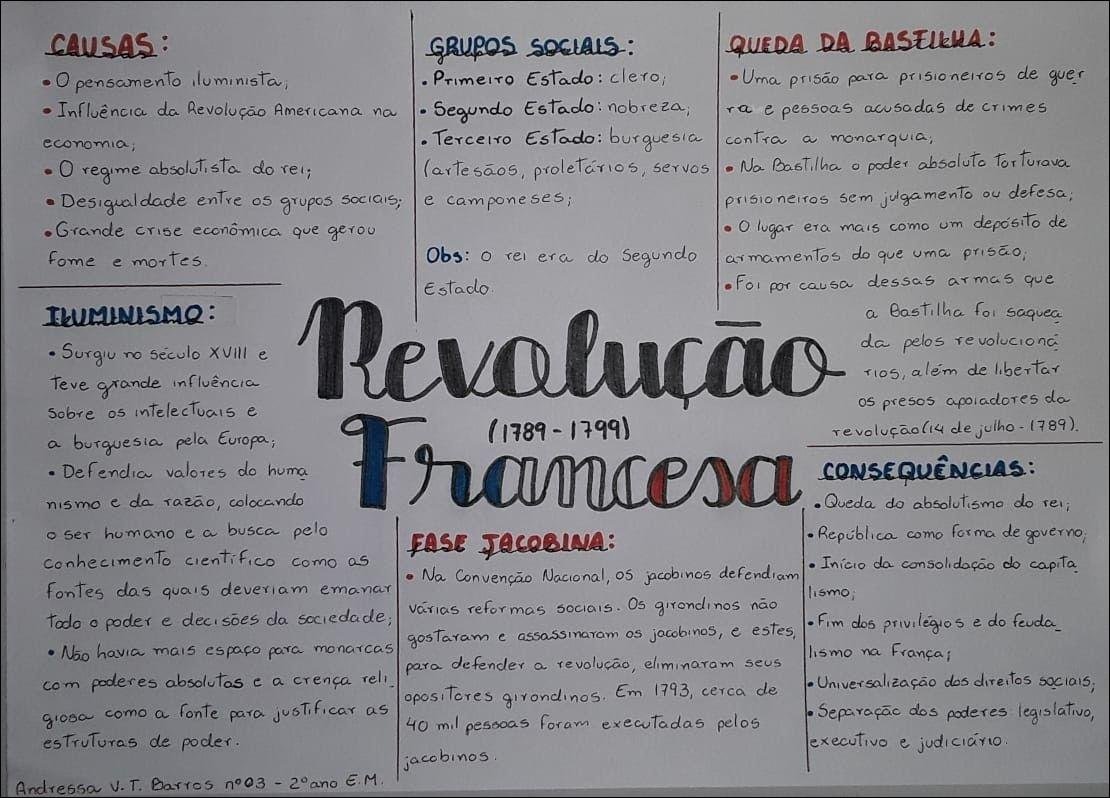 CAUSAS:
• O pensamento iluminista;
• Influência da Revolução Americana na
economia;
• O regime absolutista do rei;
• Desigualdade entre os grupos sociais;
• Grande crise econômica que gerou
fome e mortes.
GRUPOS SOCIAIS:
• Primeiro Estado: clero;
• Segundo Estado: nobreza;
• Terceiro Estado: burguesia
(artesãos, proletários, servos
e camponeses;
Obs: o rei era do Segundo
Estado.
QUEDA DA BASTILHA:
• Uma prisão para prisioneiros de guer
ra e pessoas acusadas de crimes
contra a monarquia;
• Na Bastilha o poder absoluto torturava
prisioneiros sem julgamento ou defesa;
• O lugar era mais como um depósito de
armamentos do que uma prisão;
• Foi por causa dessas armas que
a Bastilha foi saquea
da pelos revolucioná
rios, além de libertar
os presos apoiadores da
revolução (14 de julho - 1789).
ILUMINISMO:
• Surgiu no século XVIII e
teve grande influência
sobre os intelectuais e
a burguesia pela Europa;
• Defendia valores do huma
nismo e da razão, colocando
o ser humano e a busca pelo
conhecimento científico como as
fontes das quais deveriam emanar
todo o poder e decisões da sociedade;
• Não havia mais espaço para monarcas
com poderes absolutos e a crença reli_
giosa como a fonte para justificar as
estruturas de poder.
Revolução
(1789 - 1799)
Francesa
FASE JACOBINA:
• Na Convenção Nacional, os jacobinos defendiam
várias reformas sociais. Os girondinos não
gostaram e assassinaram os jacobinos, e estes,
para defender a revolução, eliminaram seus
opositores girondinos. Em 1793, cerca de
40 mil pessoas foram executadas pelos
jacobinos.
CONSEQUÊNCIAS:
• Queda do absolutismo do rei;
• República como forma de governo;
• Início da consolidação do capita
lismo;
• Fim dos privilégios e do feuda_
lismo na França;
• Universalização dos direitos sociais;
• Separação dos poderes legislativo,
executivo e judiciário.
Andressa V. T. Barros nº 03 - 2º ano E.M.